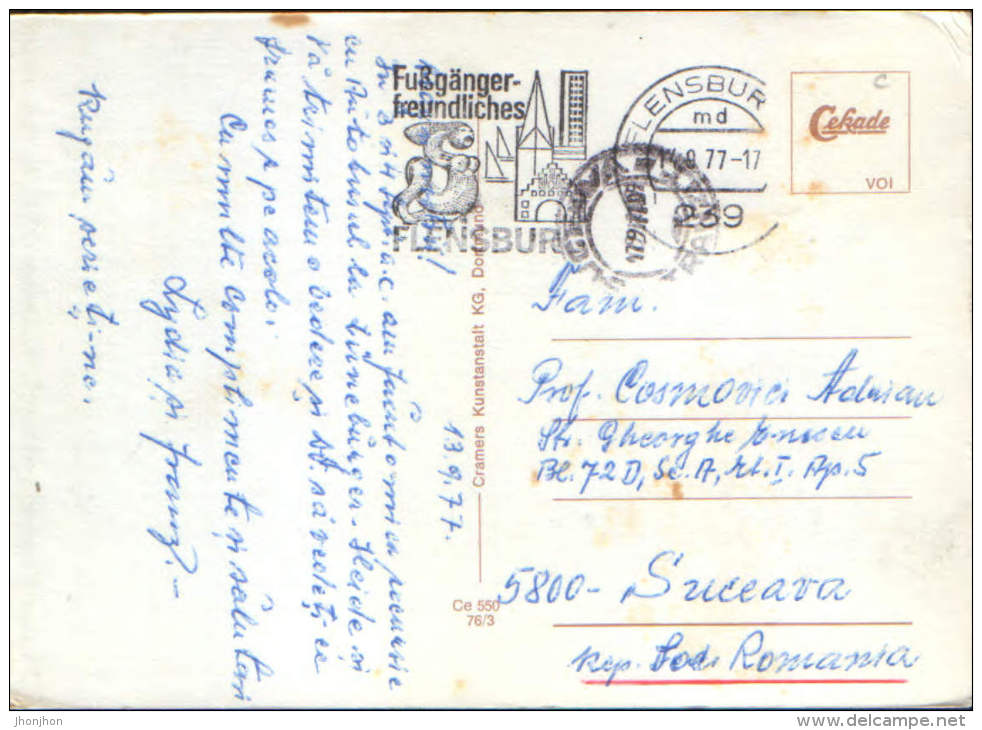 13.9.77.
cu Autobusul la Lüneburger-Heide și
Vă trimitem o vedere și Dv. să vedeți ce
frumos e pe acolo.
Cu multe complimente și salutări
Lydia și Franz.-
Rugăm scrieți-ne.
Fußgänger-
freundliches
FLENSBURG
FLENSBURG
md
.9.77-17
239
Cekade
VOI
Cramers Kunstanstalt KG, Dortmund
Ce 550
76/3
Fam.
Prof. Cosmovici Adrian
Str. Gheorghe Enescu
Bl. 72 D, Sc. A, et. I. Ap. 5
5800- Suceava
Rep. Soc. Romania
jhonjhon
www.delcampe.net